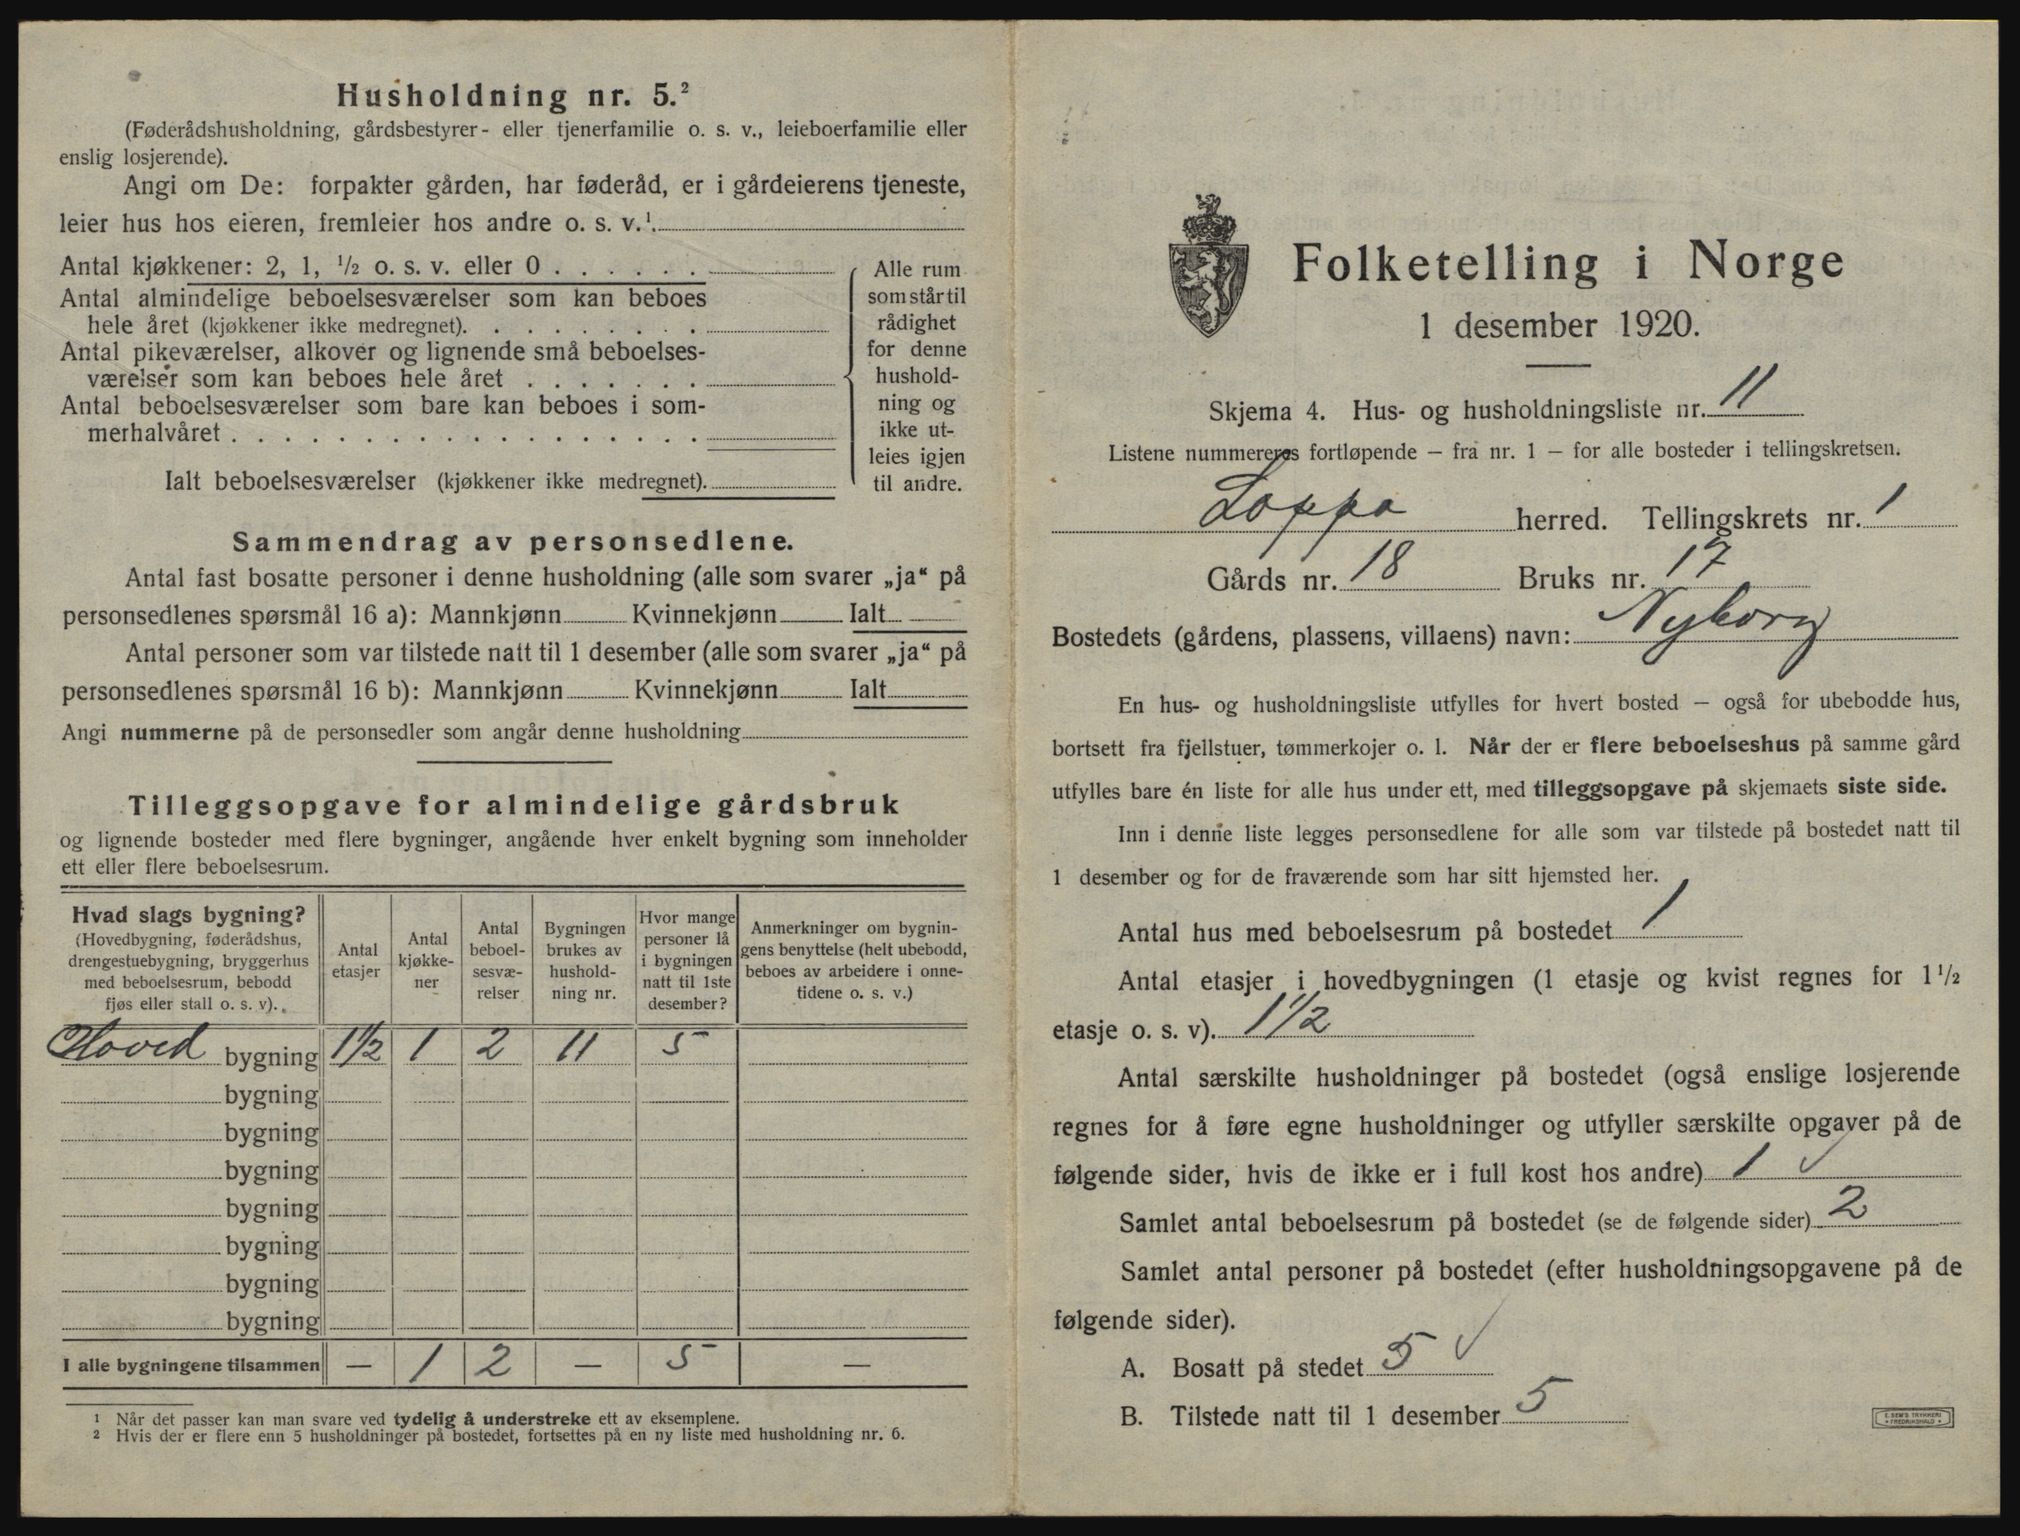 Husholdning nr. 5.²
(Føderådshusholdning, gårdsbestyrer- eller tjenerfamilie o. s. v., leieboerfamilie eller
enslig losjerende).
Angi om De: forpakter gården, har føderåd, er i gårdeierens tjeneste,
leier hus hos eieren, fremleier hos andre o. s. v.¹.
Antal kjøkkener: 2, 1, ½ o. s. v. eller 0 . . . . . .
Antal almindelige beboelsesværelser som kan beboes
hele året (kjøkkener ikke medregnet). . . . . . . . .
Antal pikeværelser, alkover og lignende små beboelses-
værelser som kan beboes hele året . . . . . . .
Antal beboelsesværelser som bare kan beboes i som-
merhalvåret . . . . . . . . . . . . . . . . . .
Ialt beboelsesværelser (kjøkkener ikke medregnet).
Alle rum
som står til
rådighet
for denne
hushold-
ning og
ikke ut-
leies igjen
til andre.
Sammendrag av personsedlene.
Antal fast bosatte personer i denne husholdning (alle som svarer „ja“ på
personsedlenes spørsmål 16 a): Mannkjønn Kvinnekjønn Ialt
Antal personer som var tilstede natt til 1 desember (alle som svarer „ja“ på
personsedlenes spørsmål 16 b): Mannkjønn Kvinnekjønn Ialt
Angi nummerne på de personsedler som angår denne husholdning
Tilleggsopgave for almindelige gårdsbruk
og lignende bosteder med flere bygninger, angående hver enkelt bygning som inneholder
ett eller flere beboelsesrum.
Hvad slags bygning?
(Hovedbygning, føderådshus,
drengestuebygning, bryggerhus
med beboelsesrum, bebodd
fjøs eller stall o. s. v).
Antal
etasjer
Antal
kjøkke-
ner
Antal
beboel-
sesvæ-
relser
Bygningen
brukes av
hushold-
ning nr.
Hvor mange
personer lå
i bygningen
natt til 1ste
desember?
Anmerkninger om bygnin-
gens benyttelse (helt ubebodd,
beboes av arbeidere i onne-
tidene o. s. v.)
Hoved bygning 1½ 1 2 11 5
bygning
bygning
bygning
bygning
bygning
bygning
bygning
I alle bygningene tilsammen — 1 2 — 5 —
¹ Når det passer kan man svare ved tydelig å understreke ett av eksemplene.
² Hvis der er flere enn 5 husholdninger på bostedet, fortsettes på en ny liste med husholdning nr. 6.
Folketelling i Norge
1 desember 1920.
Skjema 4. Hus- og husholdningsliste nr. 11
Listene nummereres fortløpende — fra nr. 1 — for alle bosteder i tellingskretsen.
Loppa herred. Tellingskrets nr. 1
Gårds nr. 18 Bruks nr. 17
Bostedets (gårdens, plassens, villaens) navn: Nyborg
En hus- og husholdningsliste utfylles for hvert bosted — også for ubebodde hus,
bortsett fra fjellstuer, tømmerkojer o. l. Når der er flere beboelseshus på samme gård
utfylles bare én liste for alle hus under ett, med tilleggsopgave på skjemaets siste side.
Inn i denne liste legges personsedlene for alle som var tilstede på bostedet natt til
1 desember og for de fraværende som har sitt hjemsted her.
Antal hus med beboelsesrum på bostedet 1
Antal etasjer i hovedbygningen (1 etasje og kvist regnes for 1½
etasje o. s. v). 1½
Antal særskilte husholdninger på bostedet (også enslige losjerende
regnes for å føre egne husholdninger og utfyller særskilte opgaver på de
følgende sider, hvis de ikke er i full kost hos andre) 1 ✓
Samlet antal beboelsesrum på bostedet (se de følgende sider) 2
Samlet antal personer på bostedet (efter husholdningsopgavene på de
følgende sider).
A. Bosatt på stedet 5 ✓
B. Tilstede natt til 1 desember 5
E. SEM'S TRYKKERI
FREDRIKSHALD